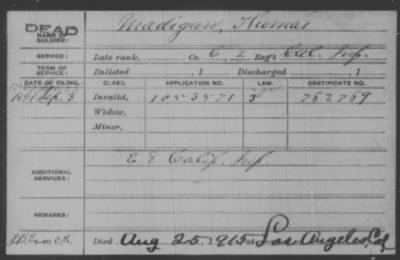 DEAD
NAME OF SOLDIER: Madigan, Thomas
SERVICE: Late rank, Co. C, 2 Reg't Cal. Inf.
TERM OF SERVICE: Enlisted , 1 Discharged , 1
DATE OF FILING. CLASS. APPLICATION NO. CERTIFICATE NO.
1891 Sep. 3 Invalid, 1053571 752759
Widow,
Minor,
ADDITIONAL SERVICES: E Calif. Inf.
REMARKS:
Died Aug 25. 1915 at Los Angeles, Cal